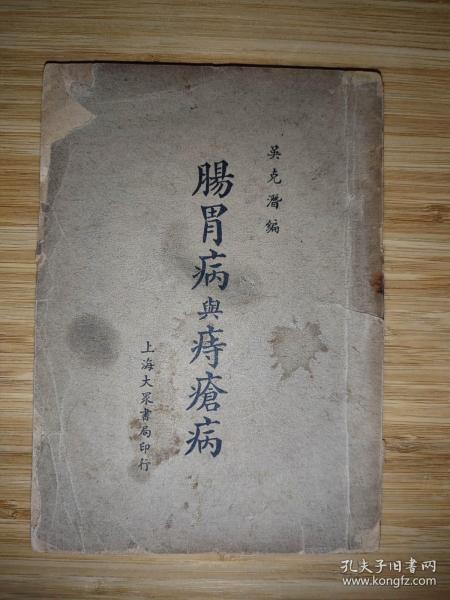 吳克潛編
腸胃病與痔瘡病
上海大眾書局印行
孔夫子旧书网
www.kongfz.com